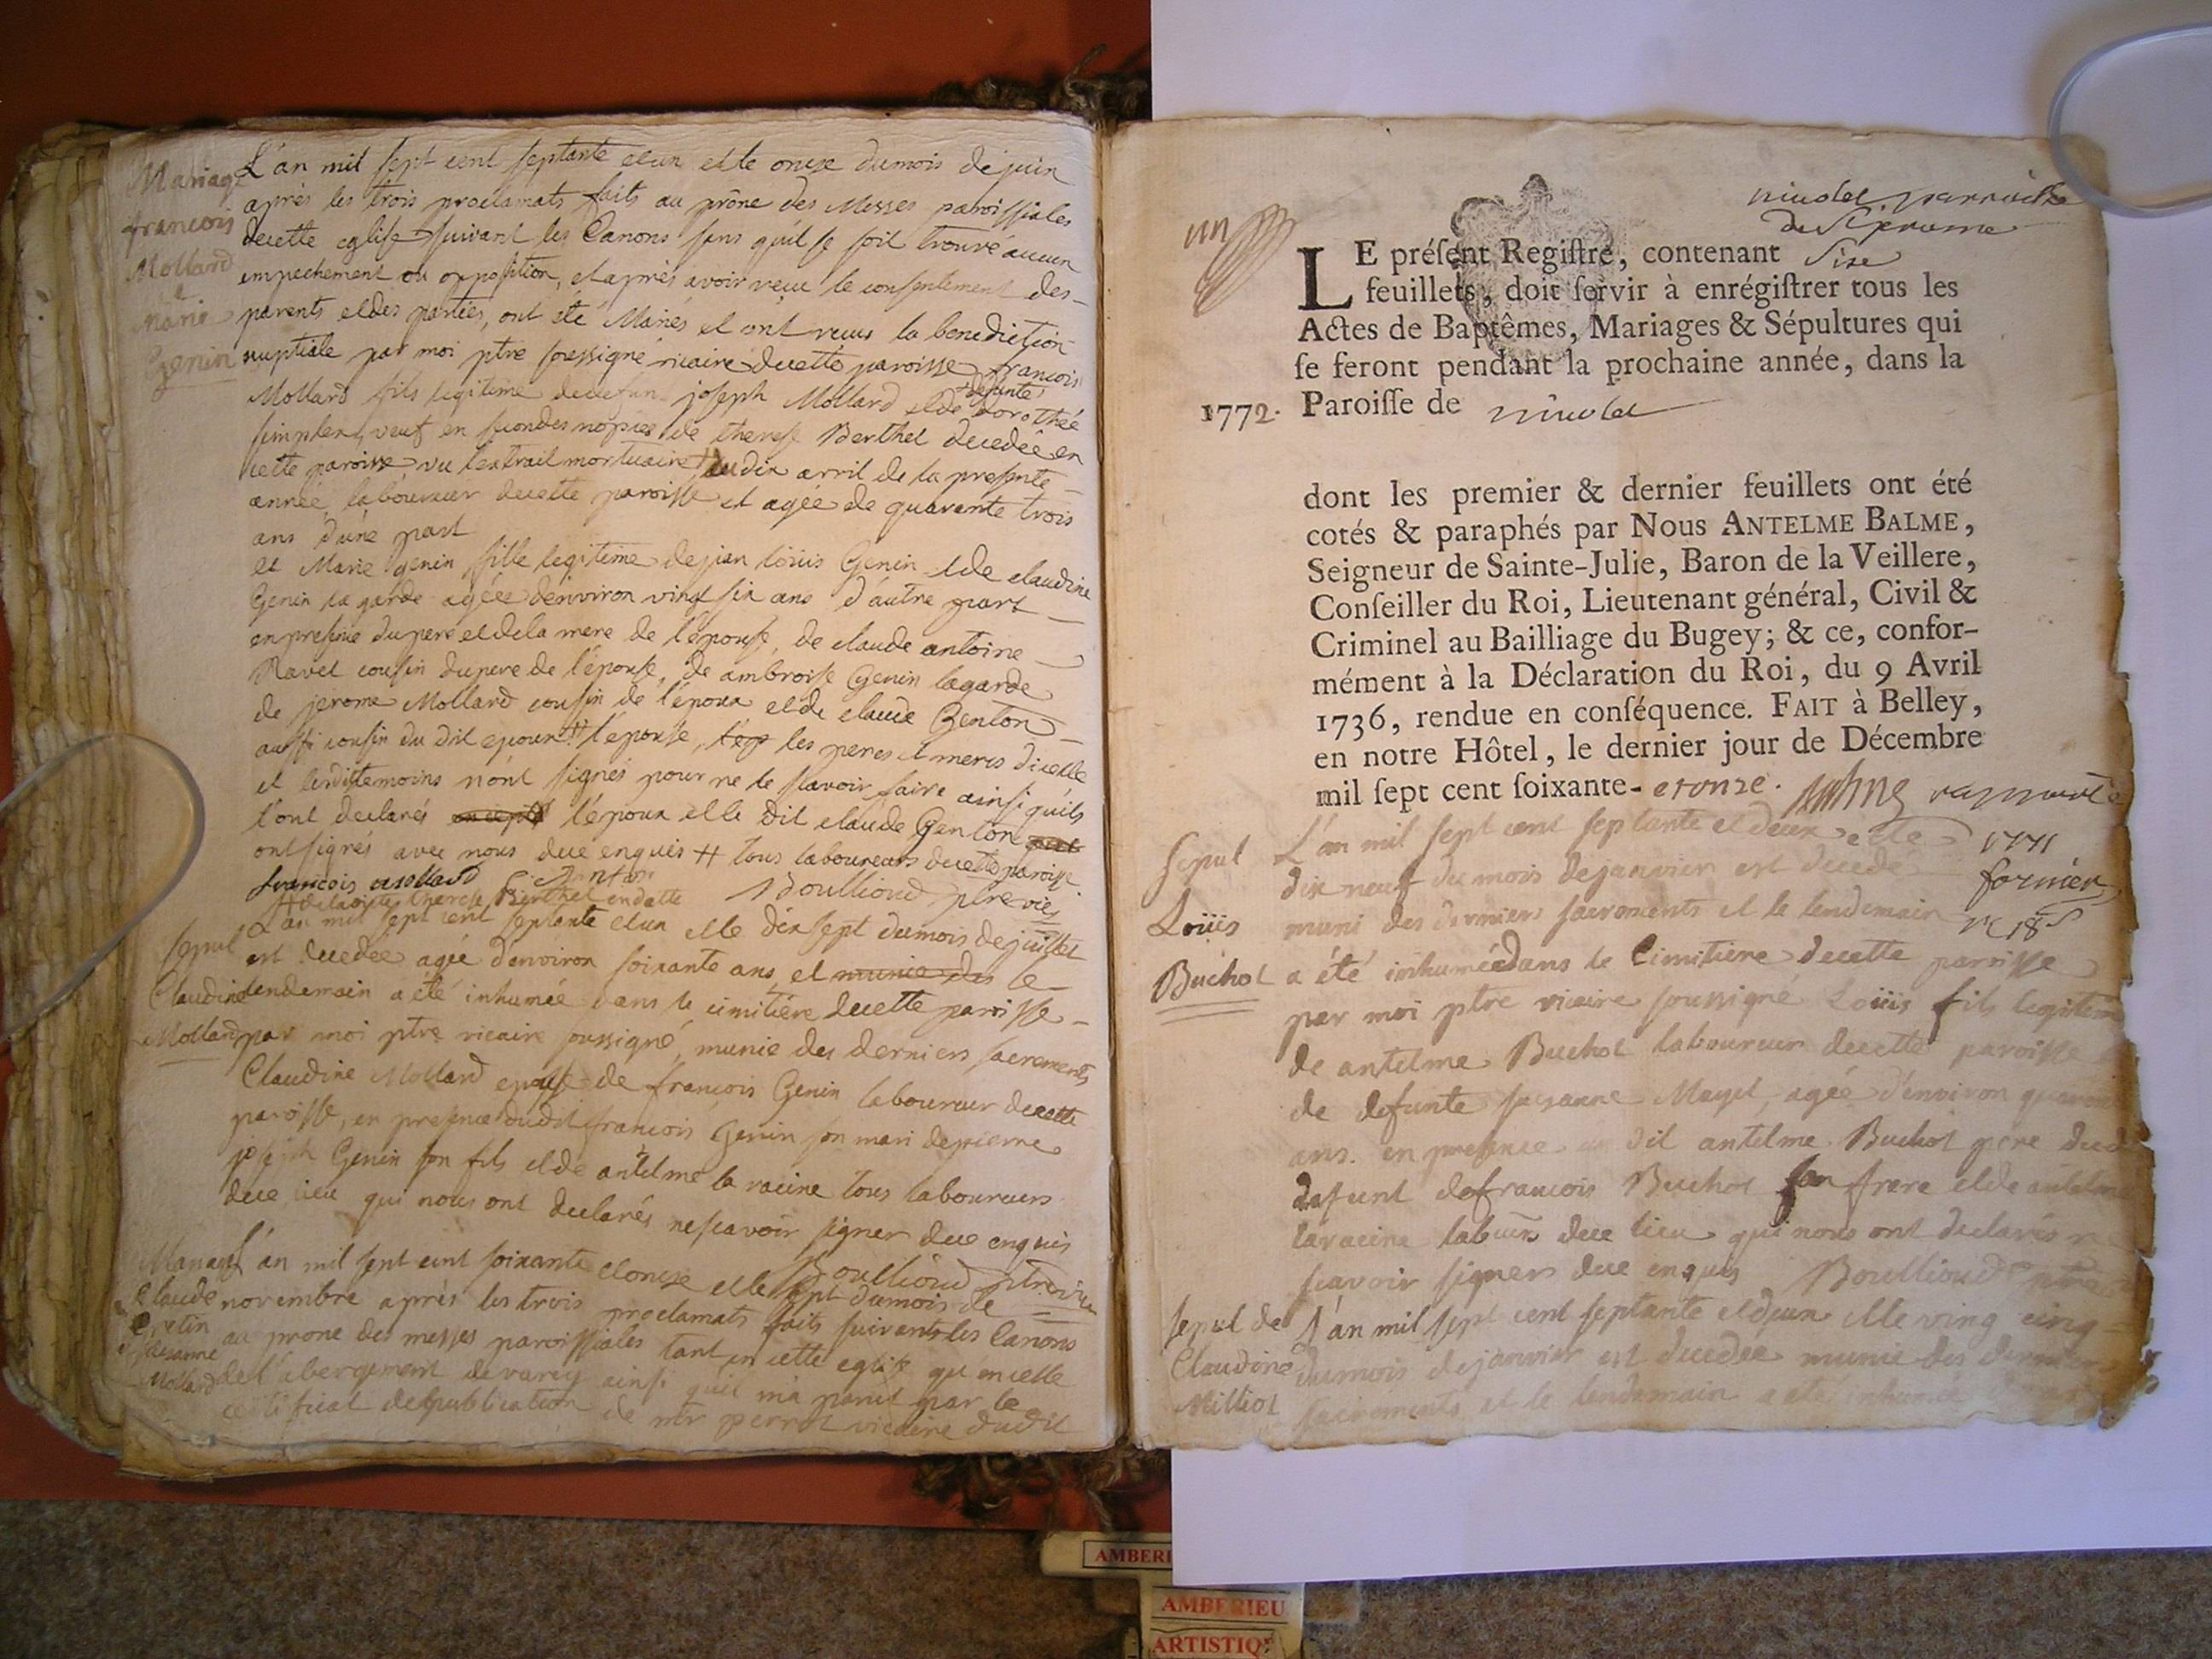 Mariage
francois
Mollard
&
Marie
Genin
L'an mil sept cent septante et un et le onze du mois de juin
après les trois proclamats faits au prône des Messes paroissiales
de cette eglise suivant les Canons sans qu'il se soit trouvé aucun
empechement ou opposition, et après avoir reçu le consentement des
parents et des parties, ont été Mariés et ont reçus la benediction
nuptiale par moi ptre soussigné vicaire de cette paroisse francois
Mollard fils legitime de joseph Mollard et de defunte dorothée
veuf en secondes nopces de therese Berthet decedée en
cette paroisse vu l'extrait mortuaire # du dix avril de la presente
année, laboureur de cette paroisse et agée de quarante trois
ans d'une part
et Marie genin fille legitime de jean loüis Genin et de claudine
Genin la garde agée d'environ vingt six ans d'autre part
en presence du pere et de la mere de l'épouse, de claude antoine
Ravet cousin du pere de l'épouse, de ambroise Genin lagarde
de jerome Mollard cousin de l'époux et de claude Genton
aussi cousin du dit epoux # l'épouse, les peres et meres d'icelle
et les dits temoins n'ont signés pour ne le sçavoir faire ainsi qu'ils
l'ont declarés l'époux et le dit claude Genton
ont signés avec nous de ce enquis # tous laboureurs de cette paroisse
francois mollard Genton
# de laditte therese Berthet en datte Boullioud ptre vic
sepul
Claudine
Mollard
L'an mil sept cent septante et un et le dix sept du mois de juillet
est decedée agée d'environ soixante ans, et munie des le
lendemain a été inhumée dans le cimitière de cette paroisse
par moi ptre vicaire soussigné, munie des derniers sacrements
Claudine Mollard epouse de francois Genin laboureur de cette
paroisse, en presence dudit francois Genin son mari de pierre
joseph Genin son fils et de antelme la racine tous laboureurs
de ce lieu qui nous ont declarés ne scavoir signer de ce enquis
Boullioud ptre vic
Mariage
Claude
Cretin
&
Susanne
Mollard
L'an mil sept cent soixante et onze et le sept du mois de
novembre après les trois proclamats faits suivants les Canons
au prone des messes paroissiales tant en cette eglise qu'en celle
de l'abergement de varey ainsi qu'il m'a paru par le
certificat de publication de mr perrot vicaire dudit
un
nivolet parroisse
de St jerome
LE préſent Regiſtre, contenant Sixe
feuillets, doit ſervir à enrégiſtrer tous les
Actes de Baptêmes, Mariages & Sépultures qui
ſe feront pendant la prochaine année, dans la
1772. Paroiſſe de nivolet
dont les premier & dernier feuillets ont été
cotés & paraphés par Nous ANTELME BALME,
Seigneur de Sainte-Julie, Baron de la Veillere,
Conſeiller du Roi, Lieutenant général, Civil &
Criminel au Bailliage du Bugey; & ce, confor-
mément à la Déclaration du Roi, du 9 Avril
1736, rendue en conſéquence. FAIT à Belley,
en notre Hôtel, le dernier jour de Décembre
mil ſept cent ſoixante- et onze.
sepul
Loüis
Buchot
L'an mil sept cent septante et deux et le
dix neuf du mois de janvier est decedé
muni des derniers sacrements et le lendemain
a été inhumée dans le Cimitiere de cette paroisse
par moi ptre vicaire soussigné Loüis fils legitime
de antelme Buchot laboureur de cette paroisse
de defunte susanne Mayet agée d'environ
ans. en presence dit antelme Buchot pere
defunt de francois Buchot son frere et de antelme
laracine de ce lieu qui nous ont declarés
scavoir signer de ce enquis Boullioud ptre
sepul de
Claudine
Milliot
L'an mil sept cent septante et deux et le ving cinq
du mois de janvier est decedée munie des derniers
sacrements et le lendemain a été inhumée
AMBERIEU
ARTISTIQ